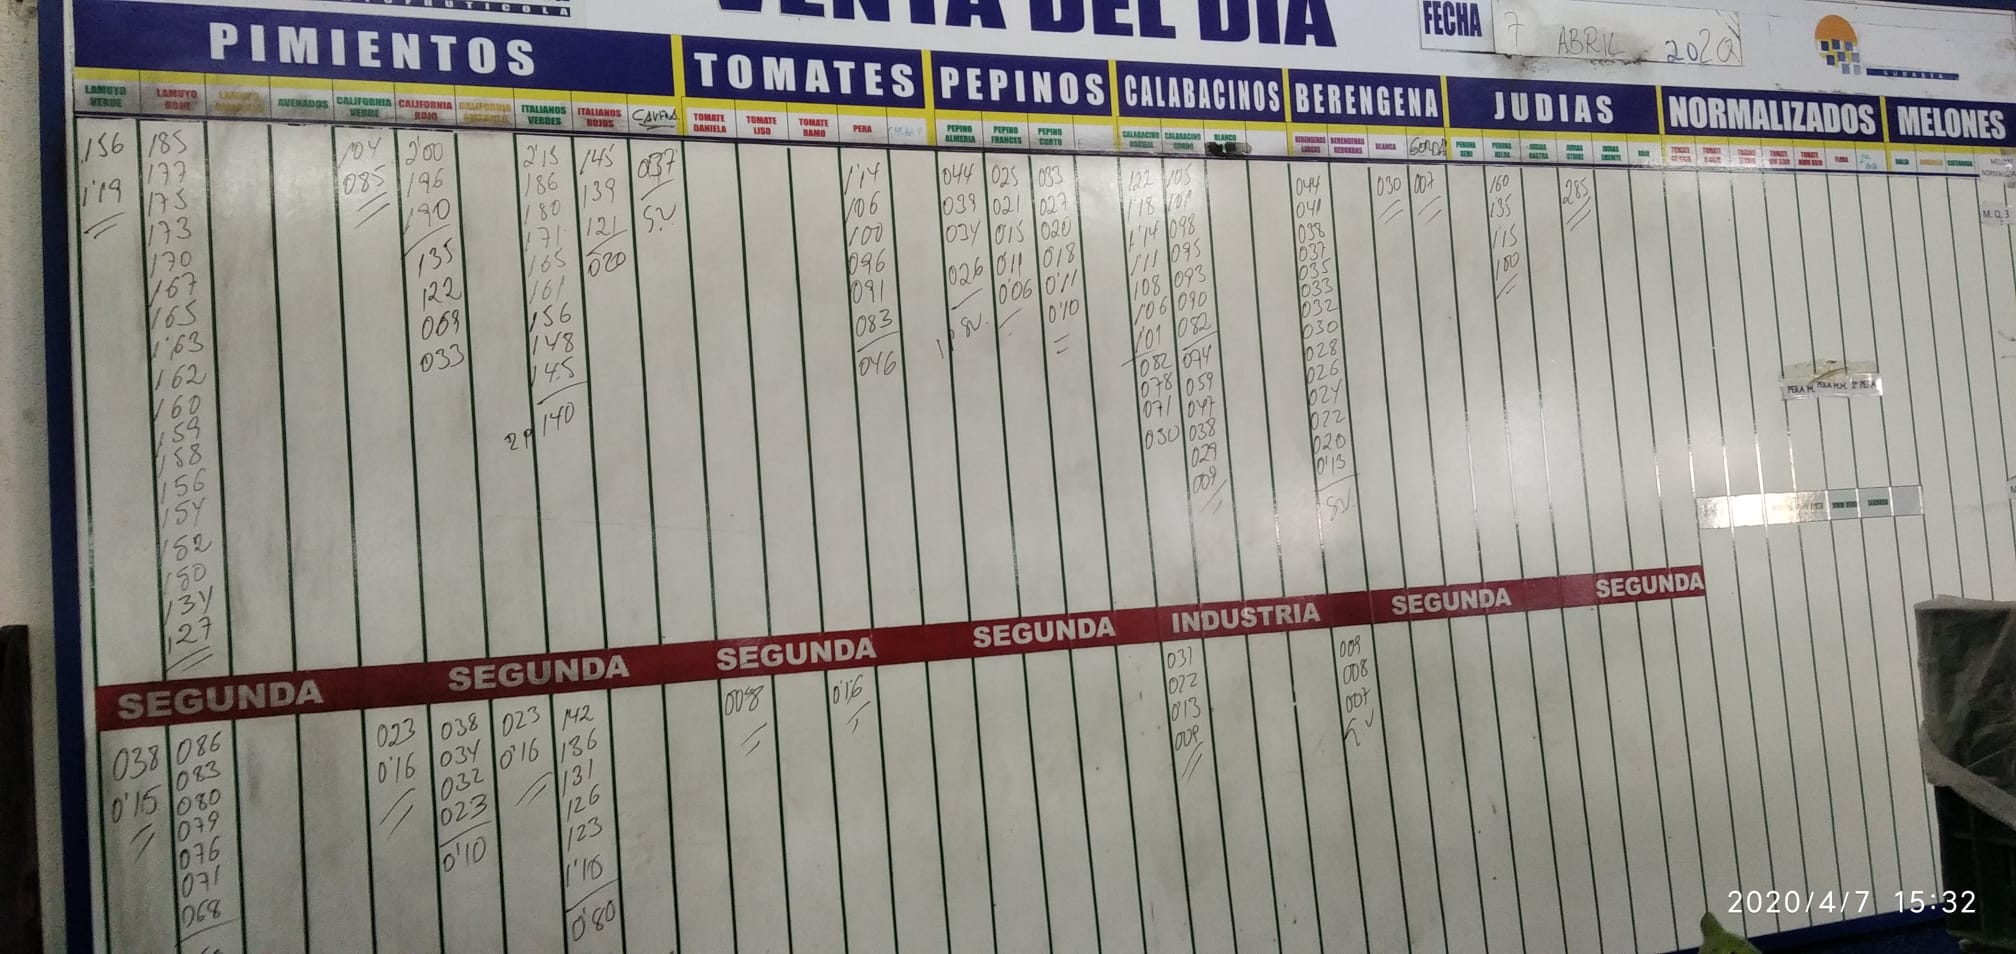 VENTA DEL DIA
FECHA 7 ABRIL 2020
PIMIENTOS TOMATES PEPINOS CALABACINOS BERENGENA JUDIAS NORMALIZADOS MELONES
LAMUYO VERDE
LAMUYO ROJO
AVENADOS
CALIFORNIA VERDE
CALIFORNIA ROJO
CALIFORNIA AMARILLO
ITALIANOS VERDES
ITALIANOS ROJOS
TOMATE DANIELA
TOMATE LISO
TOMATE RAMO
PERA
PEPINO ALMERIA
PEPINO FRANCES
PEPINO CORTO
CALABACINO GORDO
BLANCO
BLANCA
GORDA
156
1'19
185
177
175
173
170
167
165
1'63
162
160
159
158
156
154
152
150
134
127
104
085
2'00
196
190
135
122
069
033
2'15
186
180
171
165
161
156
148
145
140
145
139
121
020
037
1'14
106
100
096
091
083
046
044
039
034
026
025
021
0'15
0'11
0'06
033
027
020
018
0'11
0'10
122
1'18
1'14
1'11
108
106
1'01
082
078
071
030
105
101
098
095
093
090
082
074
059
047
038
029
009
044
041
038
037
035
033
032
030
028
026
024
022
020
0'13
030
007
160
135
1'15
100
285
PERA M. PERA M.M. 2ª PERA
SEGUNDA SEGUNDA SEGUNDA SEGUNDA INDUSTRIA SEGUNDA SEGUNDA
038
0'15
086
083
080
079
076
071
068
023
0'16
038
034
032
023
0'10
023
0'16
142
136
131
126
123
1'10
0'80
008
0'16
031
022
0'13
009
009
008
007
2020/4/7 15:32